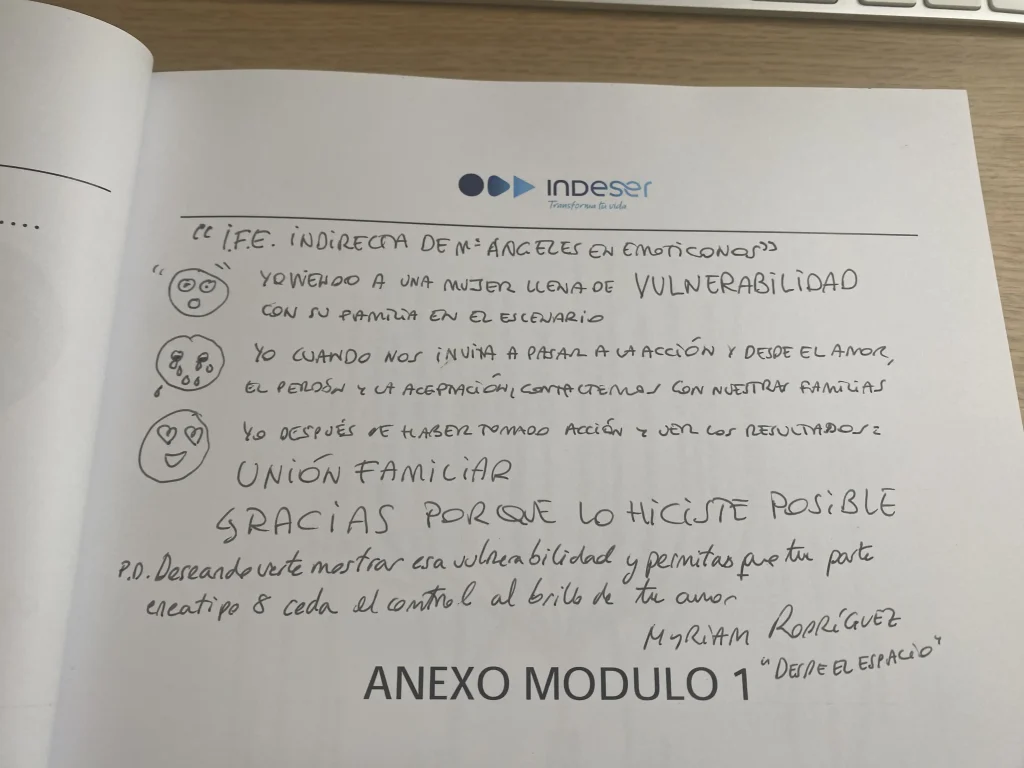 indeser
Transforma tu vida
"I.F.E. INDIRECTA DE Mª ÁNGELES EN EMOTICONOS"
YO VIENDO A UNA MUJER LLENA DE VULNERABILIDAD
CON SU FAMILIA EN EL ESCENARIO
YO CUANDO NOS INVITA A PASAR A LA ACCIÓN Y DESDE EL AMOR,
EL PERDÓN Y LA ACEPTACIÓN, CONTACTEMOS CON NUESTRAS FAMILIAS
YO DESPUÉS DE HABER TOMADO ACCIÓN Y VER LOS RESULTADOS:
UNIÓN FAMILIAR
GRACIAS PORQUE LO HICISTE POSIBLE
P.D. Deseando verte mostrar esa vulnerabilidad y permitas que tu parte
eneatipo 8 ceda el control al brillo de tu amor
MYRIAM RODRÍGUEZ
"DESDE EL ESPACIO"
ANEXO MODULO 1